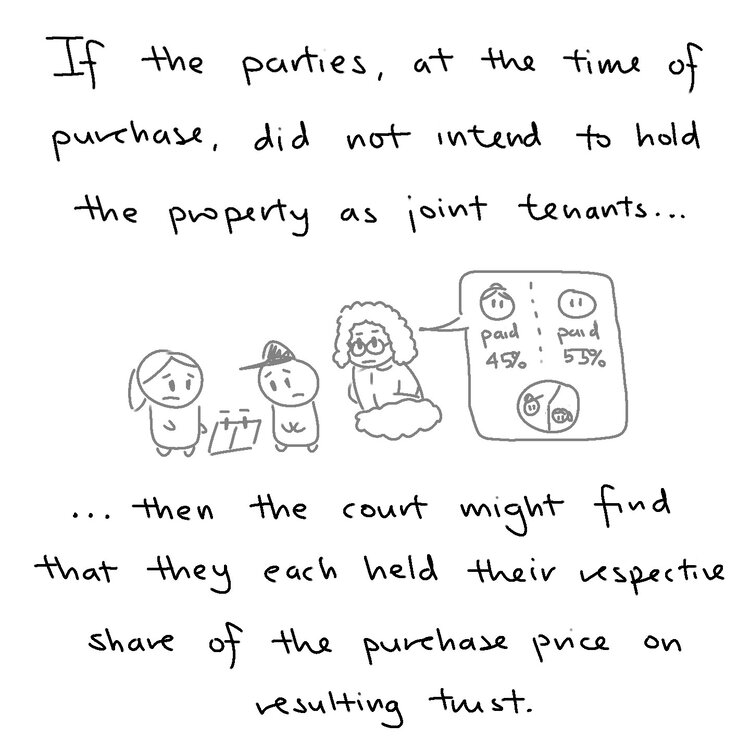 If the parties, at the time of
purchase, did not intend to hold
the property as joint tenants...
paid
45%
paid
55%
... then the court might find
that they each held their respective
share of the purchase price on
resulting trust.